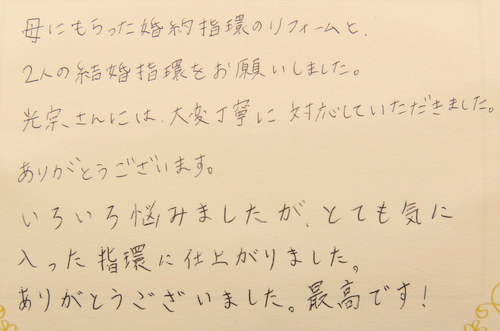 母にもらった婚約指環のリフォームと、
2人の結婚指環をお願いしました。
光宗さんには、大変丁寧に対応していただきました。
ありがとうございます。
いろいろ悩みましたが、とても気に
入った指環に仕上がりました。
ありがとうございました。最高です!